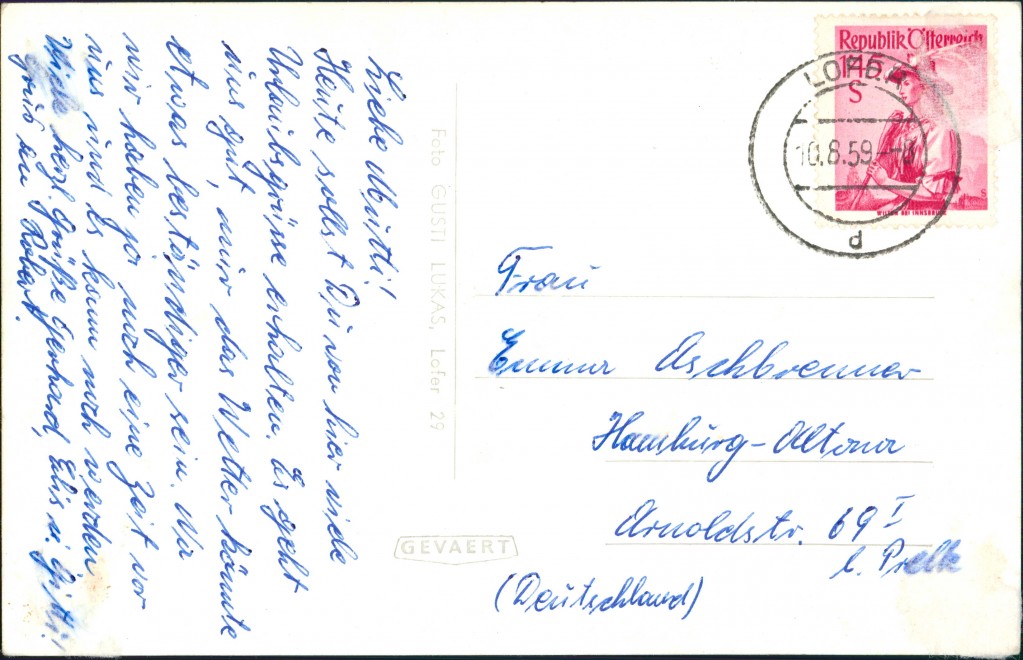 Liebe Mutti!
Heute sollst Du von hier viele
Urlaubsgrüsse erhalten. Es geht
uns gut, nur das Wetter könnte
etwas beständiger sein. Wir
wir haben ja noch eine Zeit vor
uns und es kann noch werden
Viele herzl. Grüße Gerhard, Elis u. Gitti!
Gruß an Robert.
Foto GUSTI LUKAS, Lofer 29
GEVAERT
Republik Österreich
1.45
S
WILTEN BEI INNSBRUCK
LOFER
10.8.59
d
Frau
Emma Aschbrenner
Hamburg-Altona
Arnoldstr. 69 I
b. Prelle
(Deutschland)